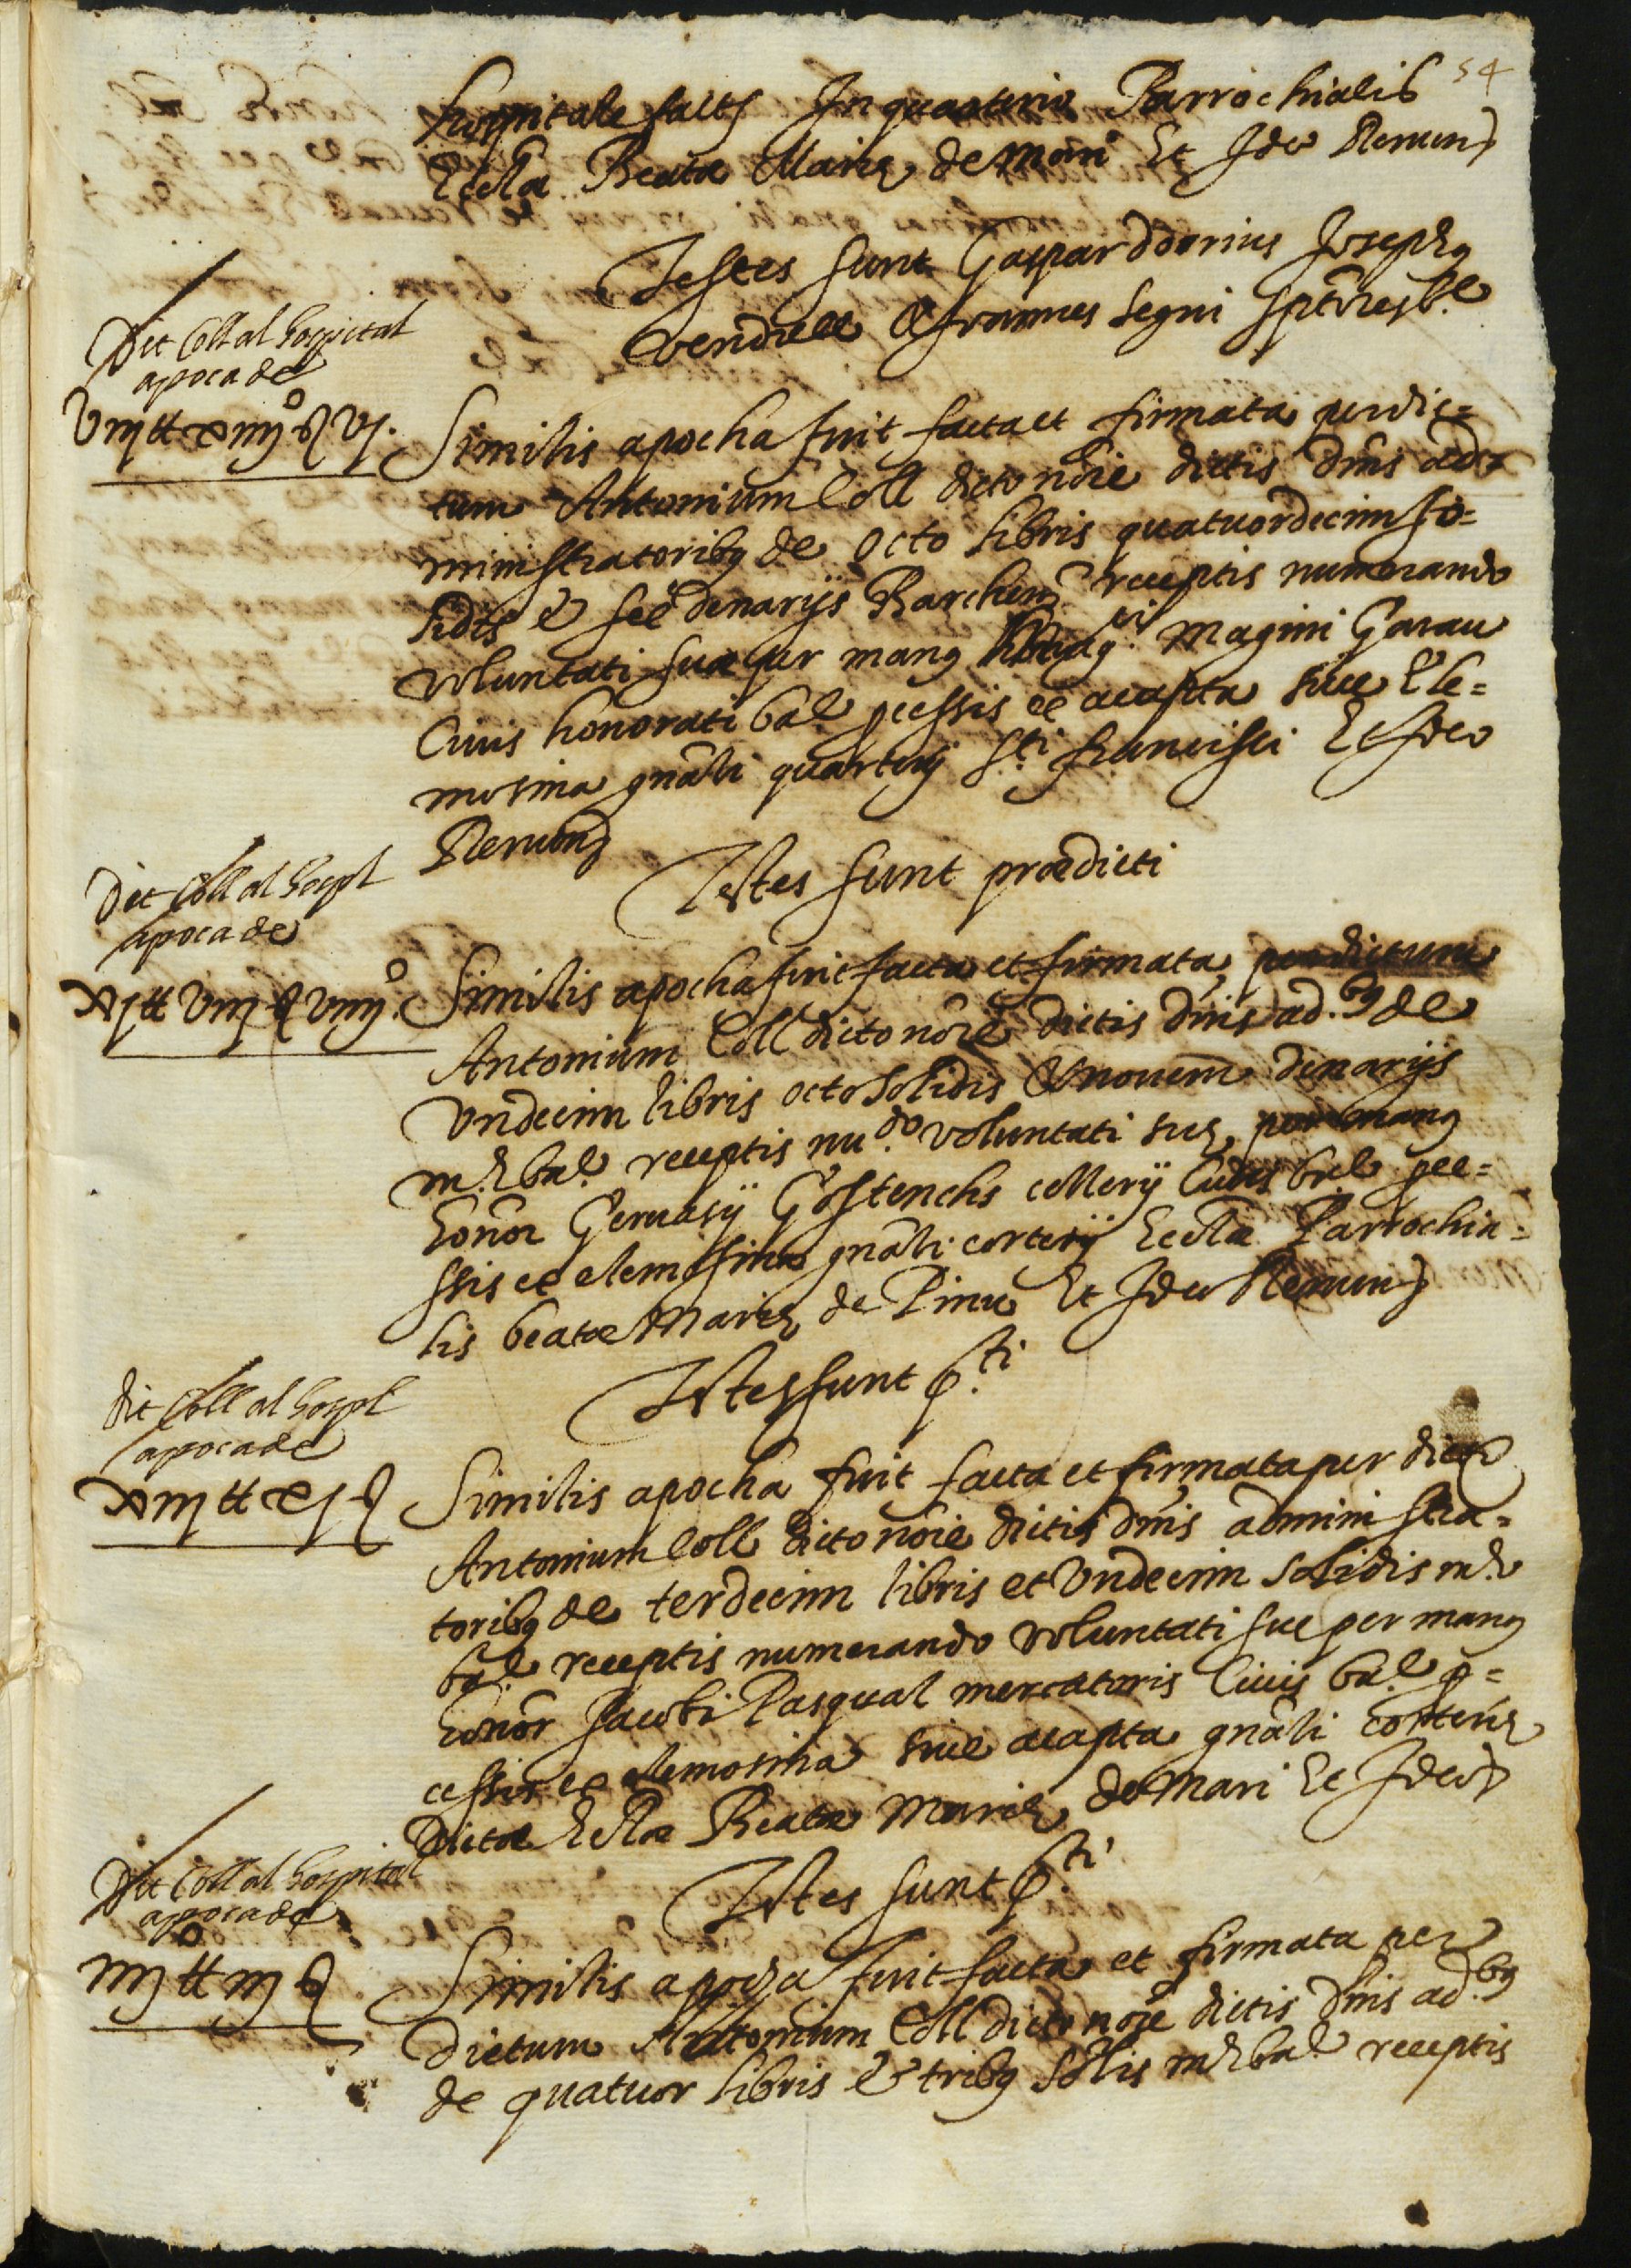 54
hospitale factis In quarterio Parrochialis
Ecclæ Beatæ Mariæ de Mari Et Ideo Renun)
Testes sunt Gaspar dorius Josephq
vendrell & frannes segui
Dit Coll al hospital
apoca de
viij ℔ xiiij ß vj.
Similis apocha fuit facta et firmata per dic=
tum Antonium Coll dicto nōie dictis dn̄is ad=
ministratoribq de octo libris quatuordecim so=
lidis & sex denarijs Barchenͦ receptis numerando
voluntati suæ per manq Magini Garau
Civis honorati bal pcessis ex acapta sive Ele=
mosina gnāli quarterij Sti francisci Et Ideo
Renund
Testes sunt prædicti
Dit Coll al hospl
apoca de
xj ℔ viij ß viiij
Similis apocha fuit facta et firmata per dictum
Antonium Coll dicto nōie dictis dn̄is ad.bq de
Undecim libris octo solidis & novem denarijs
m.æ bal receptis nu.do voluntati suæ per manq
honor Gervasij Gostenchs cellerij Civis bal pce=
ssis ex elemosina gnāli corterij Ecclæ Parrochia=
lis beatæ Mariæ de Pinu Et Ideo Renun)
Testes sunt p.ti
dit Coll al hospl
apoca de
xiij ℔ xj ß
Similis apocha fuit facta et firmata per dict
Antonium Coll dicto nōie dictis dn̄is administra=
toribq de terdecim libris et Undecim solidis m.æ
bal receptis numerando voluntati sue per manq
honor Jacobi Pasqual mercatoris Civis bal p=
cessis ex elemosina sive acapta gnāli corterij
Dictæ Ecclæ Beatæ Mariæ de Mari Et Ideo)
Testes sunt p.ti
Dit Coll al hospital
apoca de
iiij ℔ iij ß
Similis apocha fuit facta et firmata per
Dictum Antonium Coll dicto nōie dictis dn̄is ad.bq
de quatuor libris & tribq solis m.æ bal receptis